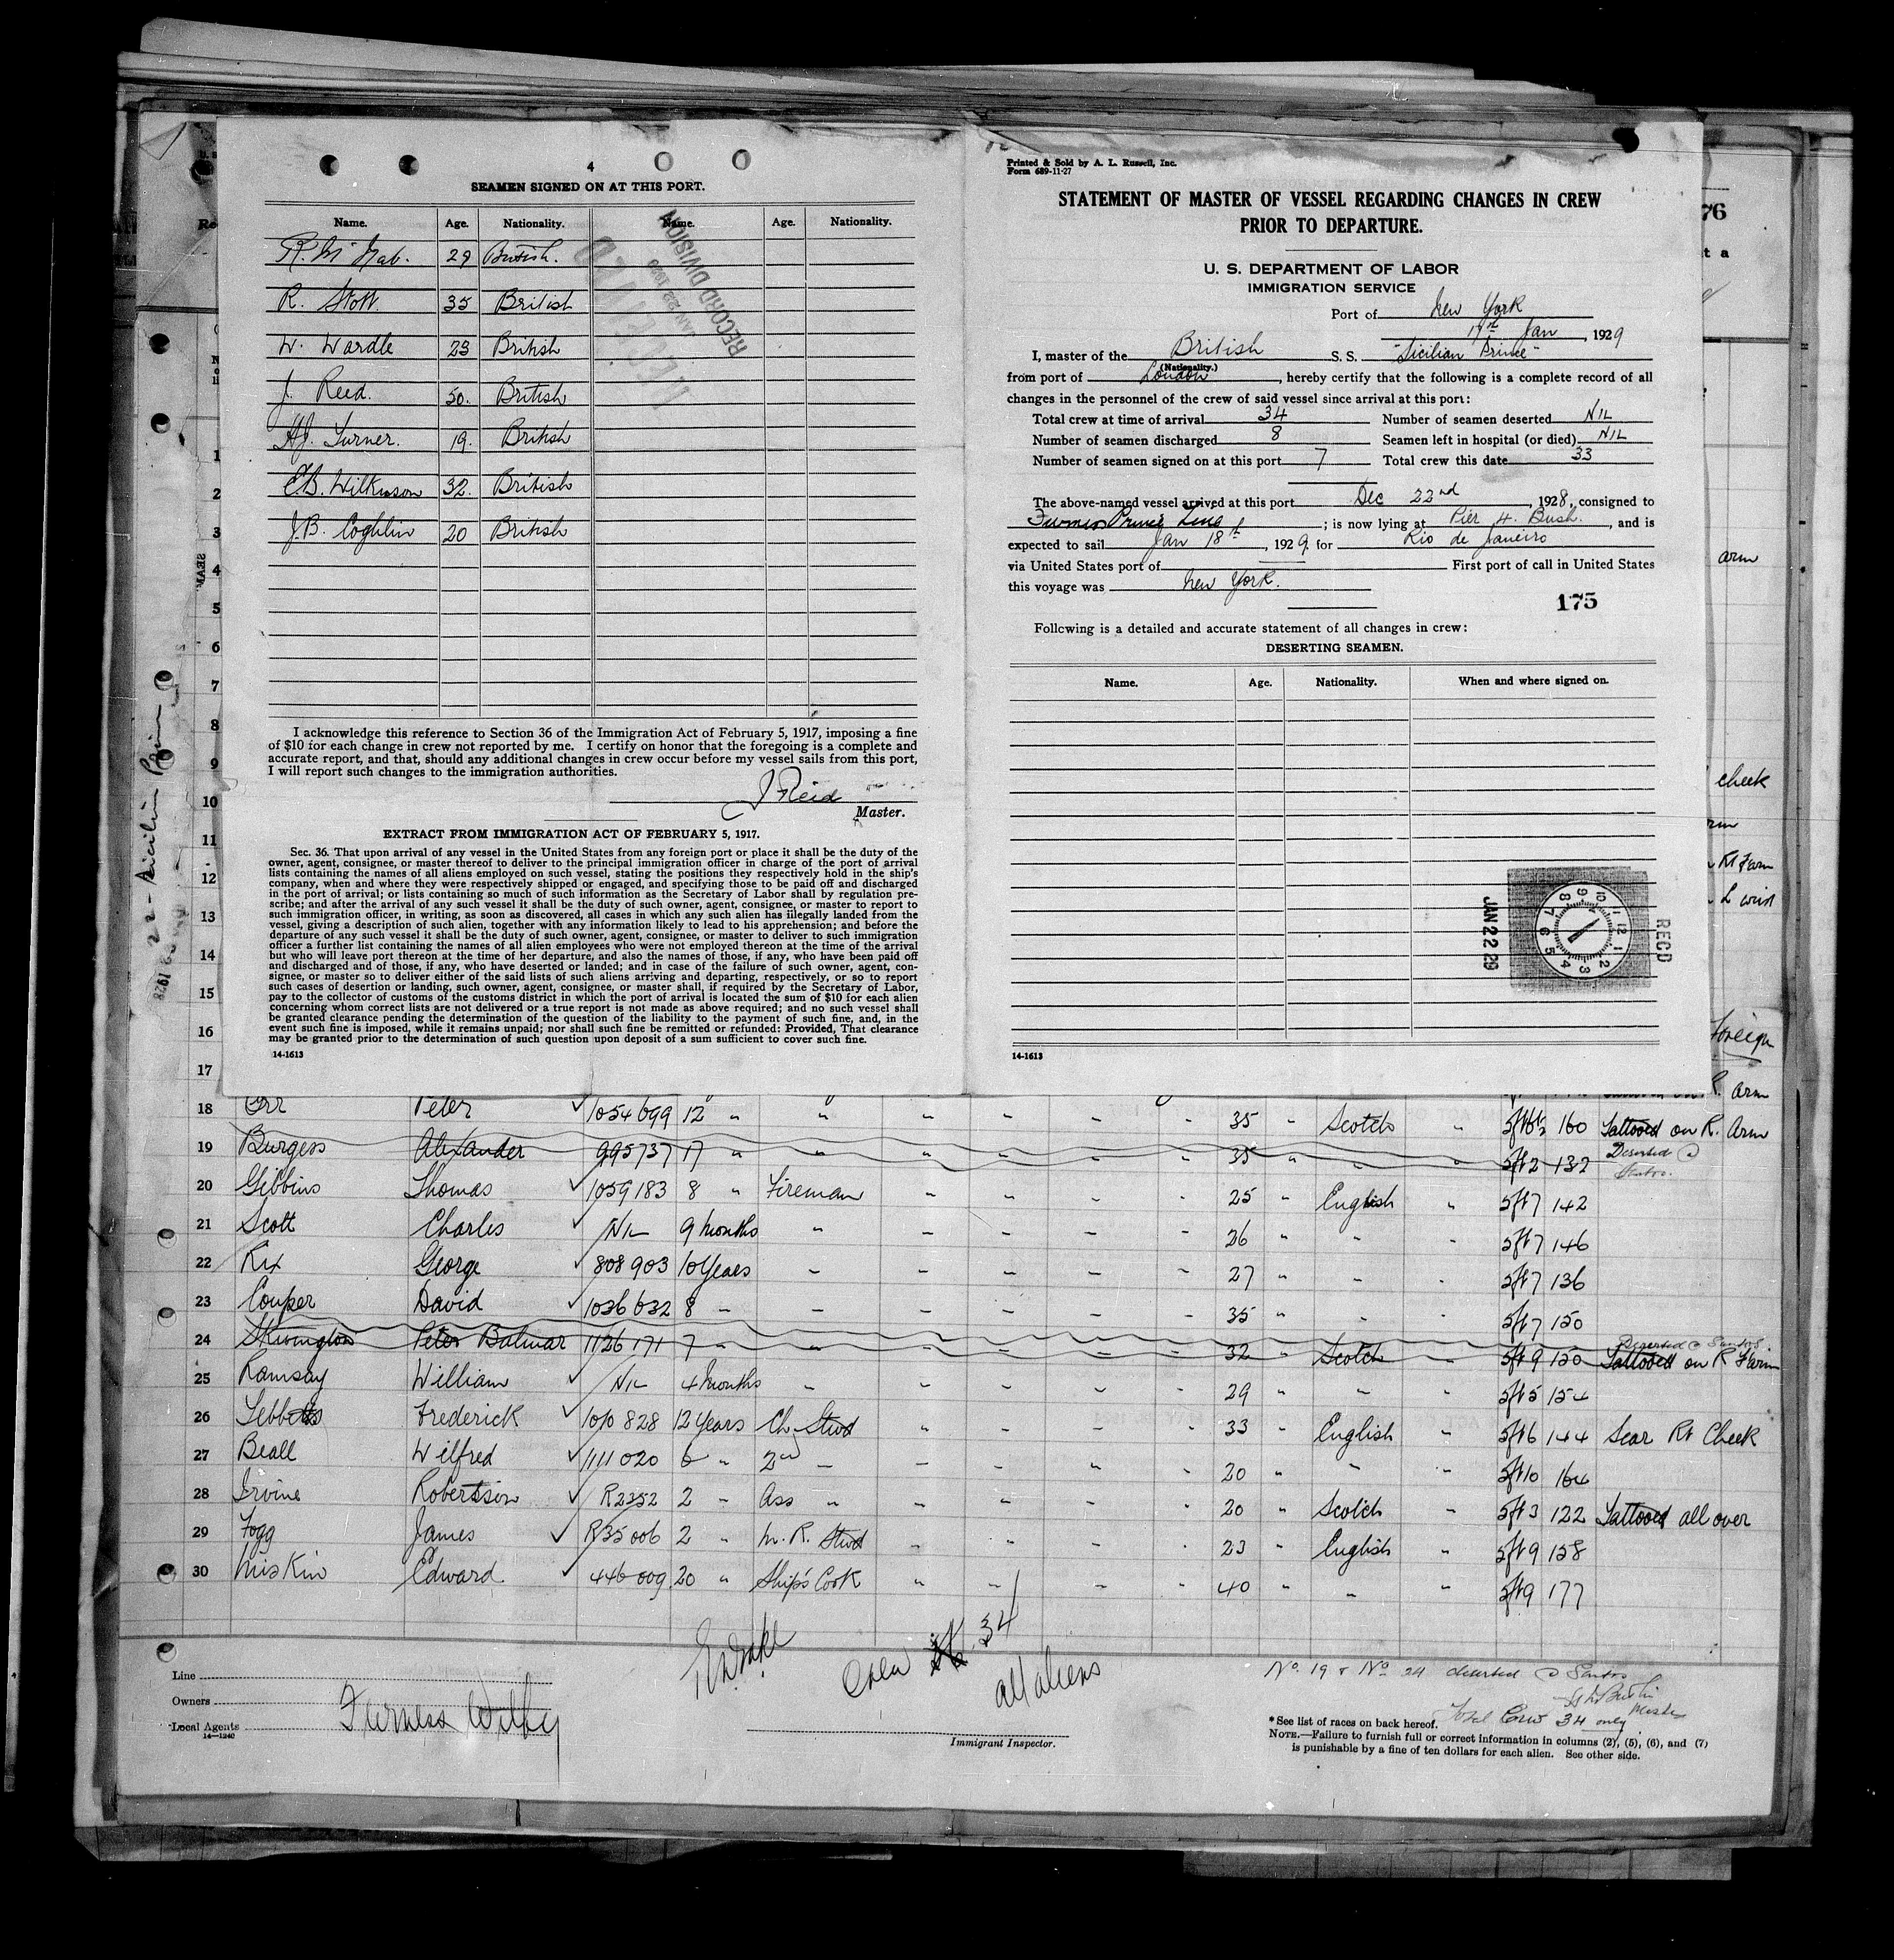 4
SEAMEN SIGNED ON AT THIS PORT.
Name. Age. Nationality. Name. Age. Nationality.
R. McNab. 29 British.
R. Stott. 35 British
W. Wardle 23 British
J. Reed. 50. British
H.J. Turner. 19. British
E.B. Wilkinson 32. British
J.B. Coghlin 20 British
RECORD DIVISION
JAN 22 1929
RECEIVED
I acknowledge this reference to Section 36 of the Immigration Act of February 5, 1917, imposing a fine
of $10 for each change in crew not reported by me. I certify on honor that the foregoing is a complete and
accurate report, and that, should any additional changes in crew occur before my vessel sails from this port,
I will report such changes to the immigration authorities.
J Reid
Master.
EXTRACT FROM IMMIGRATION ACT OF FEBRUARY 5, 1917.
Sec. 36. That upon arrival of any vessel in the United States from any foreign port or place it shall be the duty of the
owner, agent, consignee, or master thereof to deliver to the principal immigration officer in charge of the port of arrival
lists containing the names of all aliens employed on such vessel, stating the positions they respectively hold in the ship's
company, when and where they were respectively shipped or engaged, and specifying those to be paid off and discharged
in the port of arrival; or lists containing so much of such information as the Secretary of Labor shall by regulation pre-
scribe; and after the arrival of any such vessel it shall be the duty of such owner, agent, consignee, or master to report to
such immigration officer, in writing, as soon as discovered, all cases in which any such alien has illegally landed from the
vessel, giving a description of such alien, together with any information likely to lead to his apprehension; and before the
departure of any such vessel it shall be the duty of such owner, agent, consignee, or master to deliver to such immigration
officer a further list containing the names of all alien employees who were not employed thereon at the time of the arrival
but who will leave port thereon at the time of her departure, and also the names of those, if any, who have been paid off
and discharged and of those, if any, who have deserted or landed; and in case of the failure of such owner, agent, con-
signee, or master so to deliver either of the said lists of such aliens arriving and departing, respectively, or so to report
such cases of desertion or landing, such owner, agent, consignee, or master shall, if required by the Secretary of Labor,
pay to the collector of customs of the customs district in which the port of arrival is located the sum of $10 for each alien
concerning whom correct lists are not delivered or a true report is not made as above required; and no such vessel shall
be granted clearance pending the determination of the question of the liability to the payment of such fine, and, in the
event such fine is imposed, while it remains unpaid; nor shall such fine be remitted or refunded: Provided, That clearance
may be granted prior to the determination of such question upon deposit of a sum sufficient to cover such fine.
14-1613
Printed & Sold by A. L. Russell, Inc.
Form 689-11-27
STATEMENT OF MASTER OF VESSEL REGARDING CHANGES IN CREW
PRIOR TO DEPARTURE.
U. S. DEPARTMENT OF LABOR
IMMIGRATION SERVICE
Port of New York
17th Jan, 1929
I, master of the British S. S. "Sicilian Prince"
(Nationality.)
from port of London, hereby certify that the following is a complete record of all
changes in the personnel of the crew of said vessel since arrival at this port:
Total crew at time of arrival 34 Number of seamen deserted NIL
Number of seamen discharged 8 Seamen left in hospital (or died) NIL
Number of seamen signed on at this port 7 Total crew this date 33
The above-named vessel arrived at this port Dec 22nd, 1928, consigned to
Furness Prince Line; is now lying at Pier 4. Bush., and is
expected to sail Jan 18th, 1929 for Rio de Janeiro
via United States port of First port of call in United States
this voyage was New York.
175
Following is a detailed and accurate statement of all changes in crew:
DESERTING SEAMEN.
Name. Age. Nationality. When and where signed on.
JAN 22 29
RECD
14-1613
76
t a
arm
cheek
arm
R Farm
L wrist
Foreign
R. arm
22 - Sicilian Prince
1928
1
2
3
4
5
6
7
8
9
10
11
12
13
14
15
16
17
18 Orr Peter 1054699 12 " " " " " " 35 " Scotch " 5ft6½ 160 Tattooed on R. Arm
19 Burgess Alexander 995737 17 " " " " " " 35 " " " 5ft2 132 Deserted @ Santos.
20 Gibbins Thomas 1059183 8 " Fireman " " " " 25 " English " 5ft7 142
21 Scott Charles NIL 9 months " " " " " 26 " " " 5ft7 146
22 Rix George 808903 10 Years " " " " " 27 " " " 5ft7 136
23 Couper David 1036632 8 " " " " " " 35 " " " 5ft7 150
24 Skivington Peter Balmar 1126171 7 " " " " " " 32 " Scotch " 5ft9 150 Deserted @ Santos. Tattooed on R Farm
25 Ramsay William NIL 4 months " " " " " 29 " " " 5ft5 154
26 Tebbetts Frederick 1010828 12 Years Ch. Stwd " " " " 33 " English " 5ft6 144 Scar Rt Cheek
27 Beall Wilfred 1111020 6 " 2nd " " " " " 20 " " " 5ft10 164
28 Irvine Robertson R2352 2 " Ass " " " " " 20 " Scotch " 5ft3 122 Tattooed all over
29 Fogg James R35006 2 " M. R. Stwd " " " " 23 " English " 5ft9 158
30 Miskin Edward. 446009 20 " Ship's Cook " " " " 40 " " " 5ft9 177
Crew 34
all aliens
Line
Owners
Local Agents Furness Withy
14-1240
Immigrant Inspector.
No. 19 & No 24 deserted @ Santos
Master
Total Crew 34 only
*See list of races on back hereof.
NOTE.—Failure to furnish full or correct information in columns (2), (5), (6), and (7)
is punishable by a fine of ten dollars for each alien. See other side.